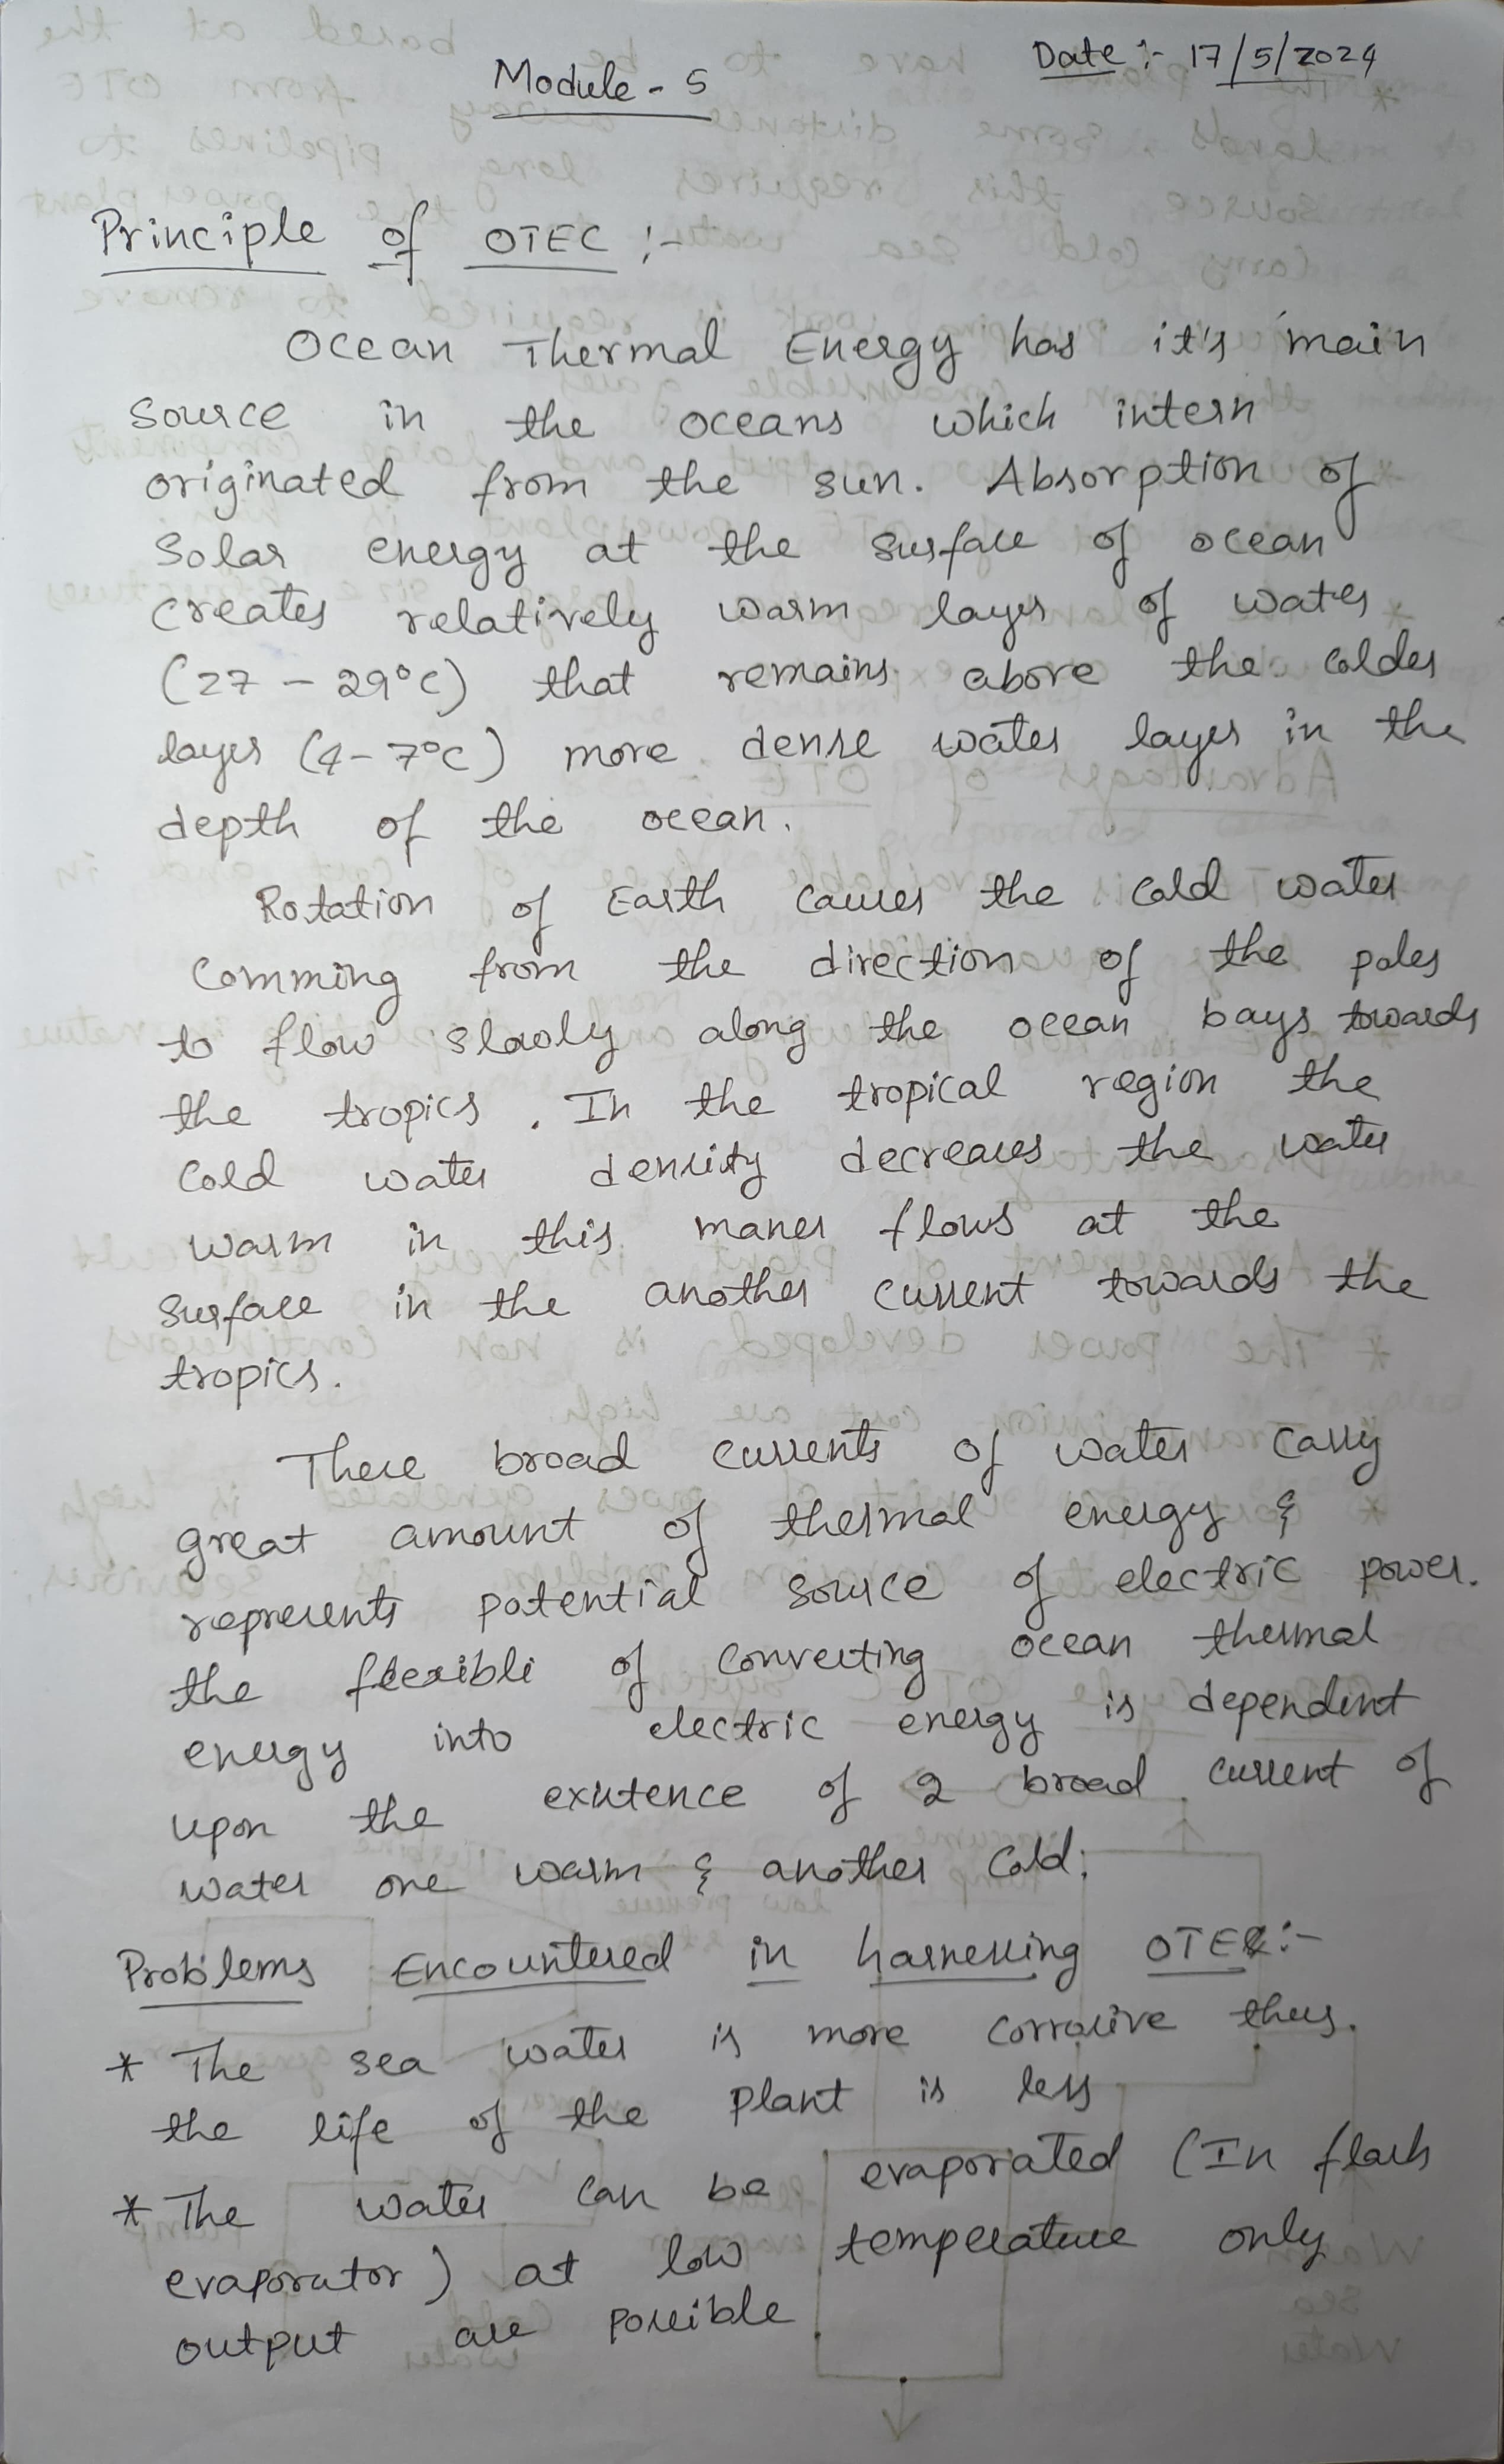 Module - 5
Date :- 17/5/2024
Principle of OTEC :-
Ocean Thermal Energy has it's main
Source in the oceans which intern
originated from the sun. Absorption of
Solar energy at the surface of ocean
creates relatively warm layer of water
(27 - 29°C) that remains above the colder
layer (4-7°C) more dense water layer in the
depth of the ocean.
Rotation of Earth causes the cold water
Comming from the direction of the poles
to flow slowly along the ocean bays towards
the tropics. In the tropical region the
Cold water density decreases the water
warm in this maner flows at the
surface in the another current towards the
tropics.
These broad currents of water carry
great amount of thermal energy &
represents potential source of electric power.
the flexible of converting ocean thermal
energy into electric energy is dependent
upon the existence of 2 broad current of
water one warm & another cold.
Problems Encountered in harnessing OTEC:-
* The sea water is more corrosive thus.
the life of the plant is less
* The water can be evaporated (In flash
evaporator) at low temperature only
output are possible